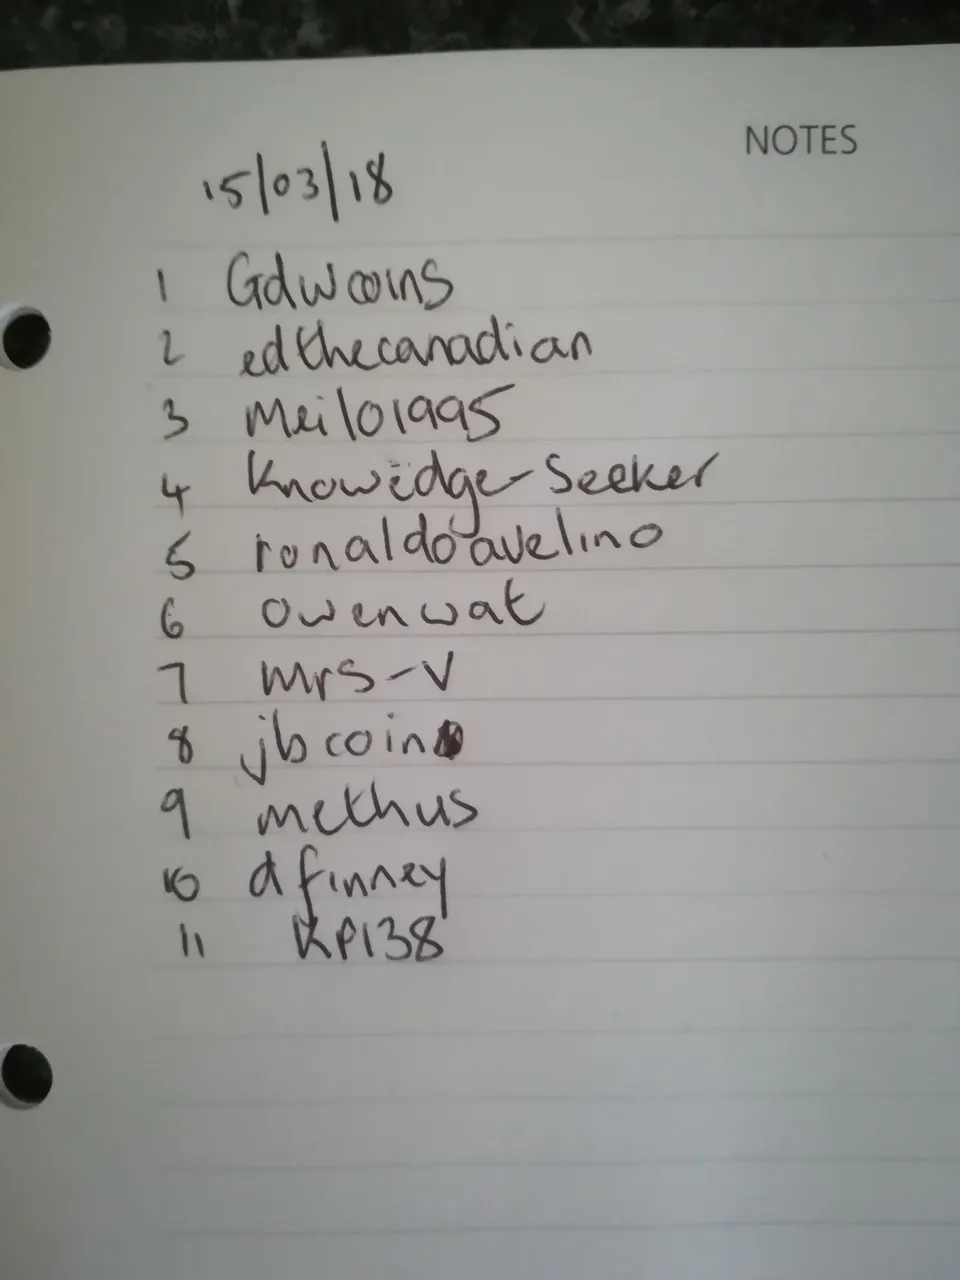 NOTES
15/03/18
1 Gdwcoins
2 edthecanadian
3 Meilo1995
4 Knowledge-Seeker
5 ronaldoavelino
6 owenwat
7 mrs-v
8 jbcoin
9 methus
10 dfinney
11 KP138